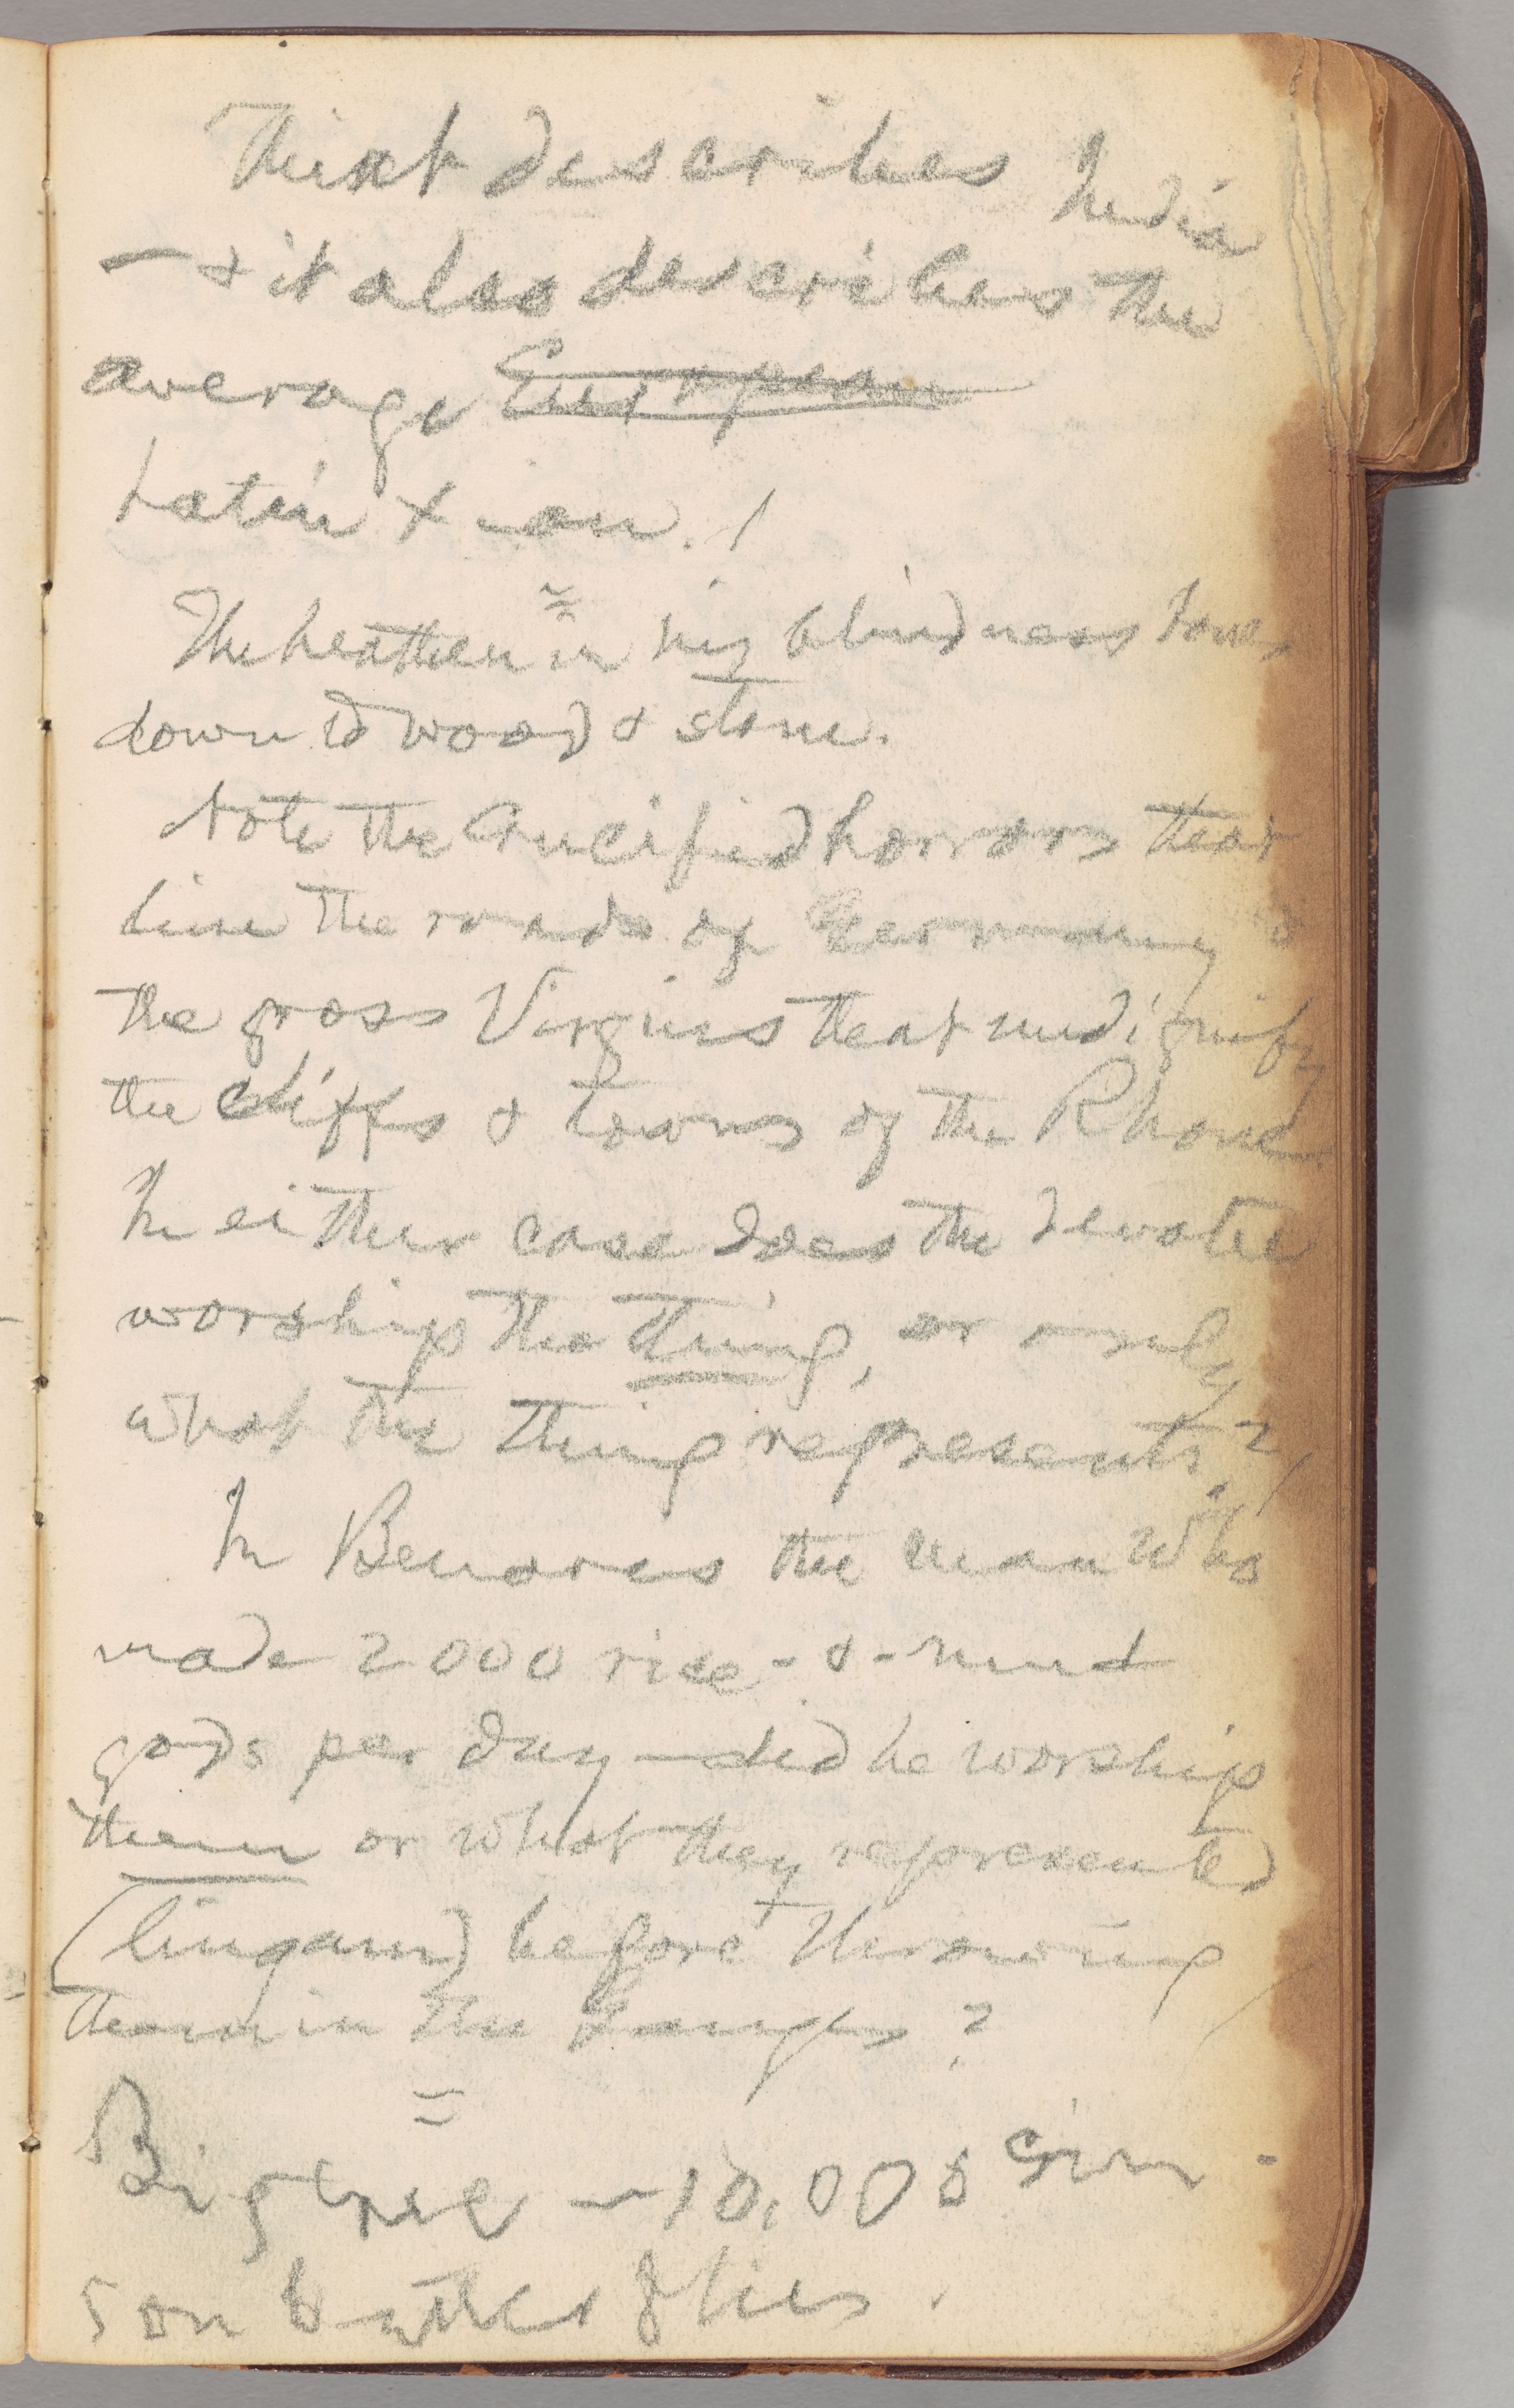 That describes India
— & it also describes the
average European
Latin X-ian. !
The heathen in his blindness bows
down to wood & stone.
Note the crucified horrors that
line the roads of Germany &
the gross Virgins that undignify
the cliffs & towns of the Rhone.
In either case does the devotee
worship the thing, or only
what the thing represents?
In Benares the man who
made 2000 rice-&-mud
gods per day—did he worship
them or what they represented
(lingam) before throwing
them in the Ganges?
Big tree — 10,000 crim-
son butterflies.